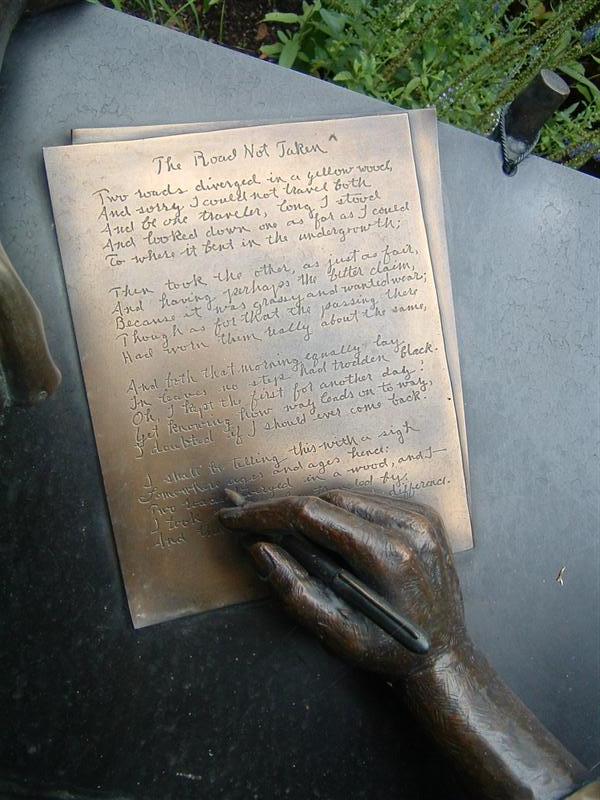 The Road Not Taken
Two roads diverged in a yellow wood,
And sorry I could not travel both
And be one traveler, long I stood
And looked down one as far as I could
To where it bent in the undergrowth;
Then took the other, as just as fair,
And having perhaps the better claim,
Because it was grassy and wanted wear;
Though as for that the passing there
Had worn them really about the same,
And both that morning equally lay
In leaves no step had trodden black.
Oh, I kept the first for another day!
Yet knowing how way leads on to way,
I doubted if I should ever come back.
I shall be telling this with a sigh
Somewhere ages and ages hence:
Two roads diverged in a wood, and I—
I took by,
And difference.